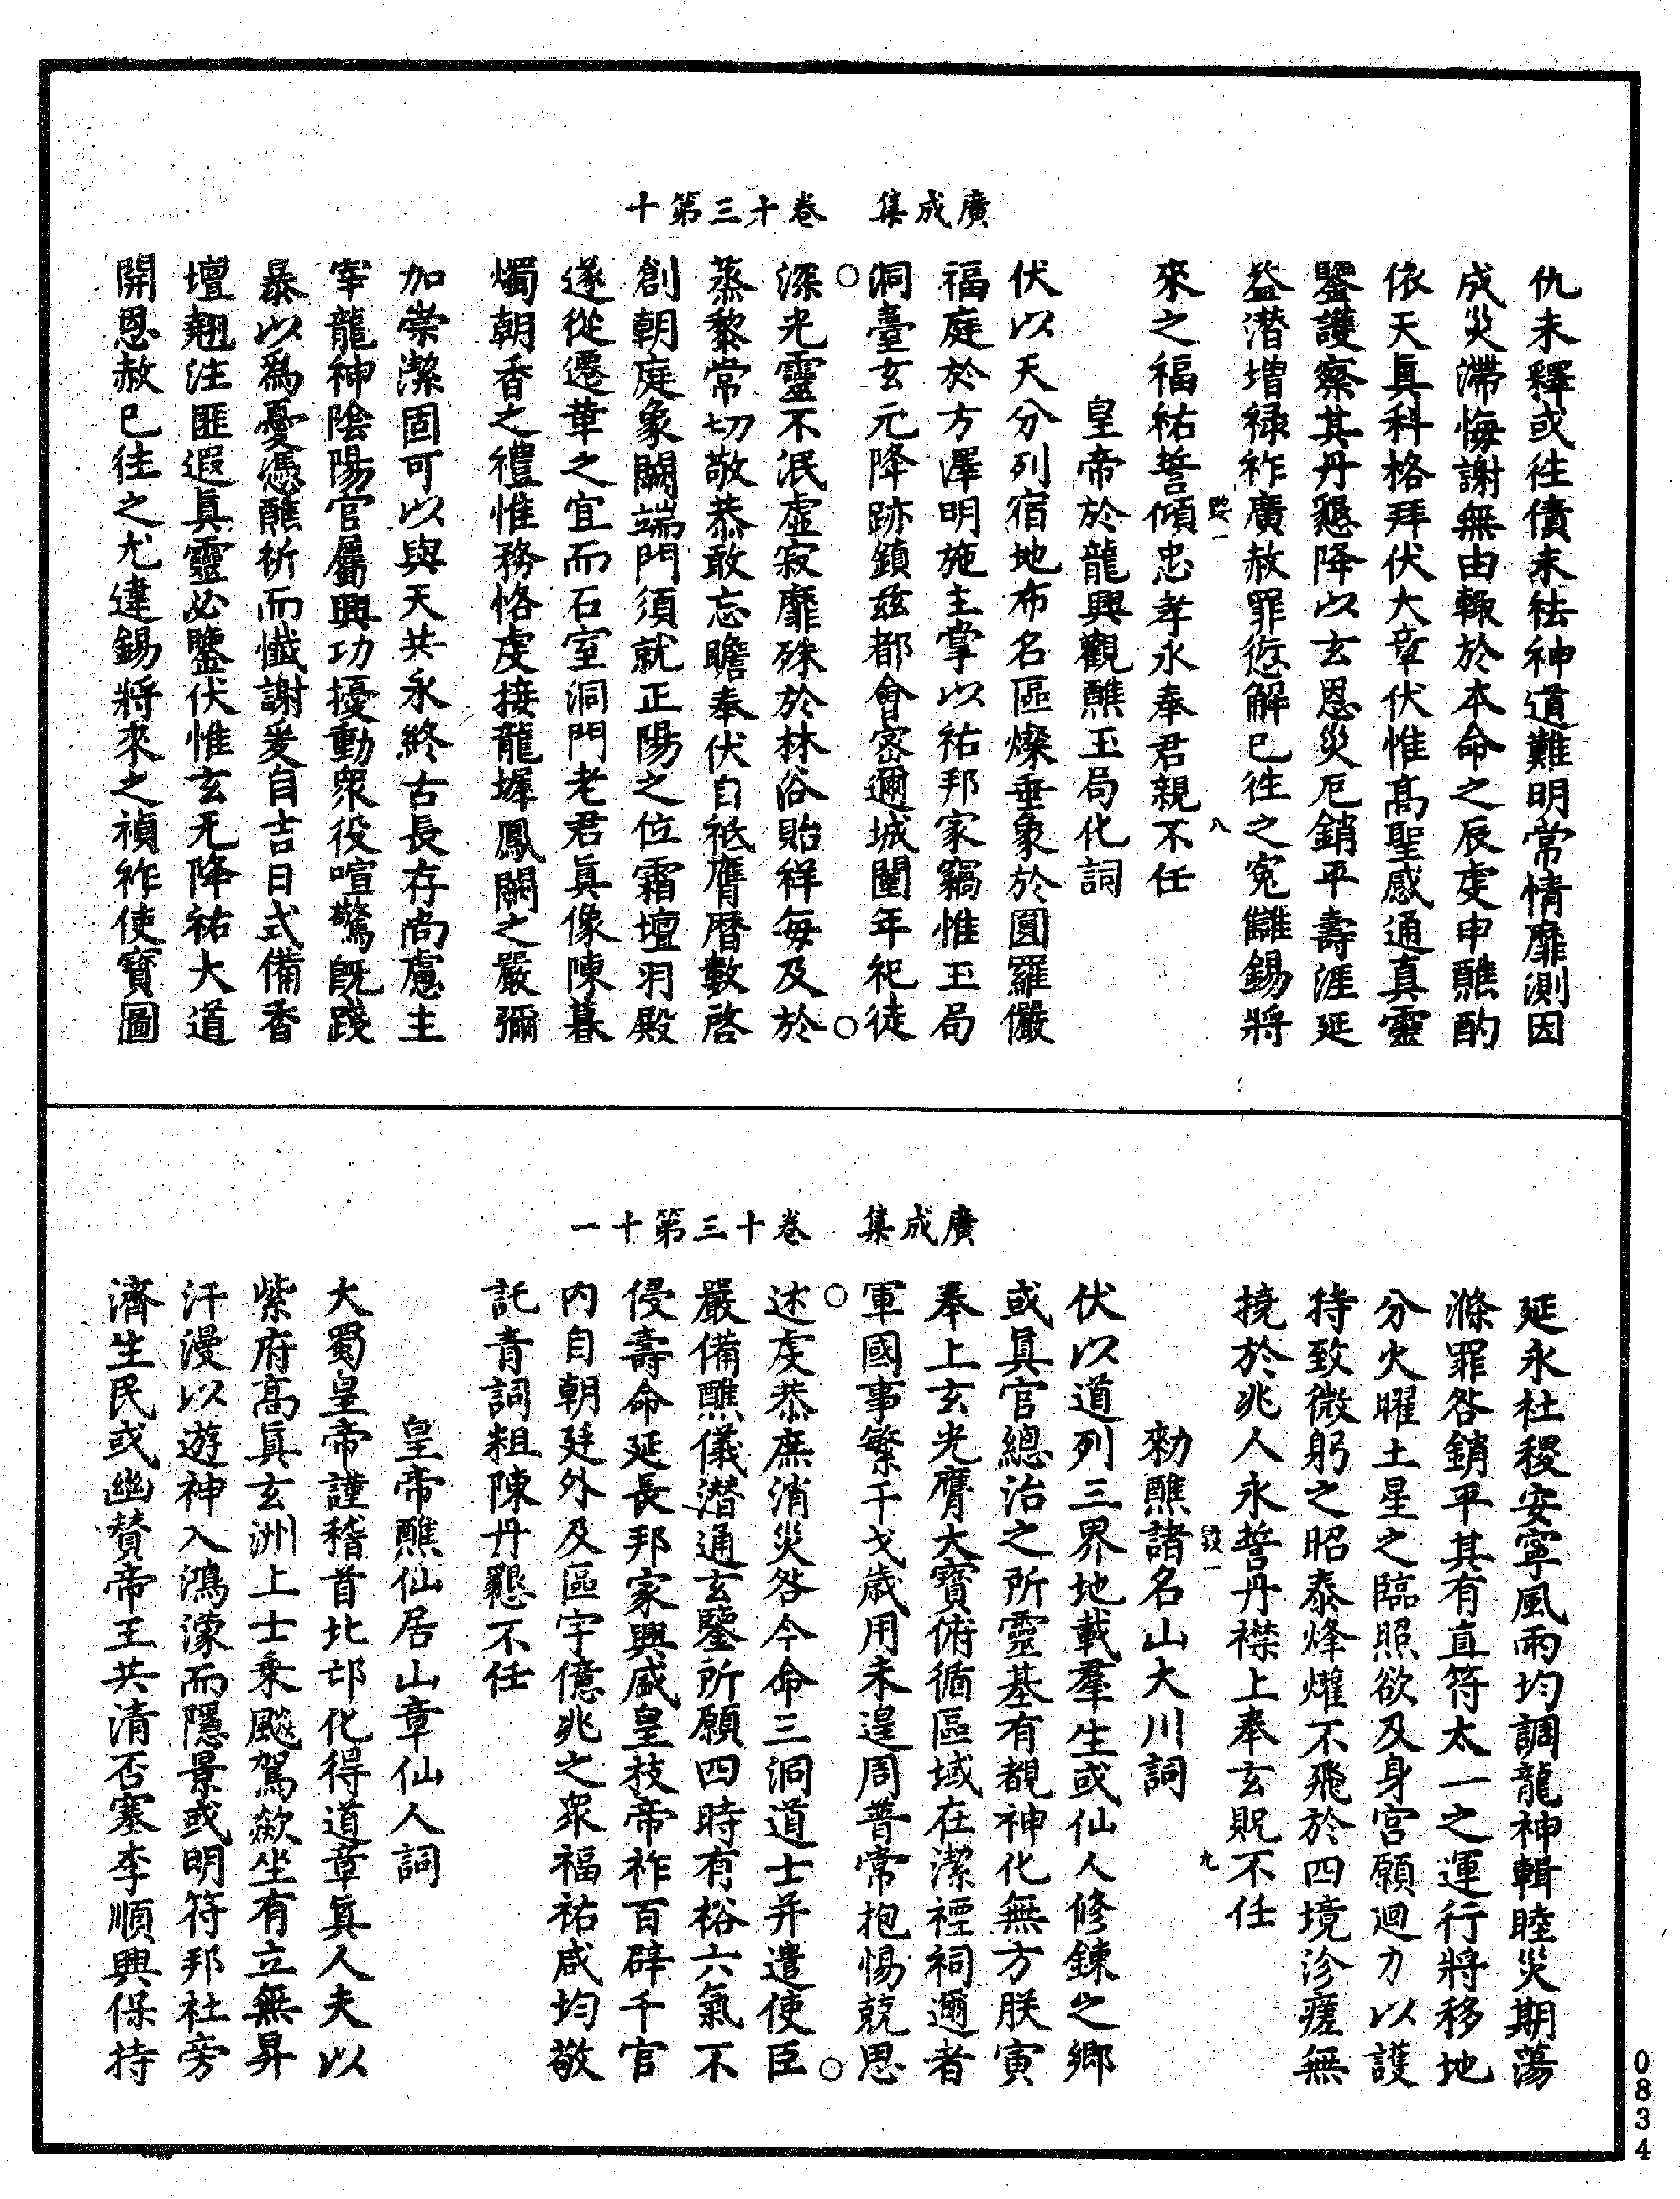 廣成集　卷十三第十
仇未釋或往債未祛神道難明常情靡測因
成災滯悔謝無由輙於本命之辰虔申醮酌
依天真科格拜伏大章伏惟髙聖感通真靈
鑒護察其丹懇降以玄恩災厄銷平壽涯延
益潜増禄祚廣赦罪愆解已徃之寃讎錫將
來之福祐誓傾忠孝永奉君親不任
八
皇帝於龍興觀醮玉局化詞
伏以天分列宿地布名區燦垂象於圓羅儼
福庭於方澤明施主掌以祐邦家竊惟玉局
洞臺玄元降跡鎮兹都會宻邇城闉年祀徒
深光靈不泯虚寂靡殊於林浴貽祥每及於
蒸黎常切敬恭敢忘瞻奉伏自祗膺暦數啓
創朝庭象闕端門須就正陽之位霜壇羽殿
遂從遷革之宜而石室洞門老君真像陳暮
燭朝香之禮惟務恪虔接龍墀鳳闕之嚴彌
加崇潔固可以與天共永終古長存尚慮主
宰龍神陰陽官屬興功擾動衆役喧驚旣踐
暴以爲憂憑醮祈而懺謝爰自吉日式備香
壇翹注匪遐真靈必鑒伏惟玄元降祐大道
開恩赦已徃之尤違錫將來之禎祚使寳圖
廣成集　卷十三第十一
延永社稷安寜風雨均調龍神輯睦災期蕩
滌罪咎銷平其有直符太一之運行將移地
分火曜土星之臨照欲及身宫願迴力以護
持致微躬之昭泰烽燿不飛於四境沴瘥無
撓於兆人永誓丹襟上奉玄貺不任
九
勑醮諸名山大川詞
伏以道列三界地載羣生或仙人修鍊之鄉
或真官總治之所靈基有覩神化無方朕寅
奉上玄光膺大寳俯循區域在潔禋祠邇者
軍國事繁干戈歲用未遑周普常抱惕兢思
述虔恭庶消災咎今命三洞道士并遣使臣
嚴備醮儀潜通玄鑒所願四時有裕六氣不
侵壽命延長邦家興盛皇枝帝祚百辟千官
内自朝廷外及區宇億兆之衆福祐咸均敬
託青詞粗陳丹懇不任
皇帝醮仙居山章仙人詞
大蜀皇帝謹稽首北邙化得道章真人夫以
紫府髙真玄洲上士乘飈駕歘坐有立無昇
汗漫以遊神入鴻濛而隱景或明符邦社旁
濟生民或幽賛帝王共清否塞李順興保持
0834